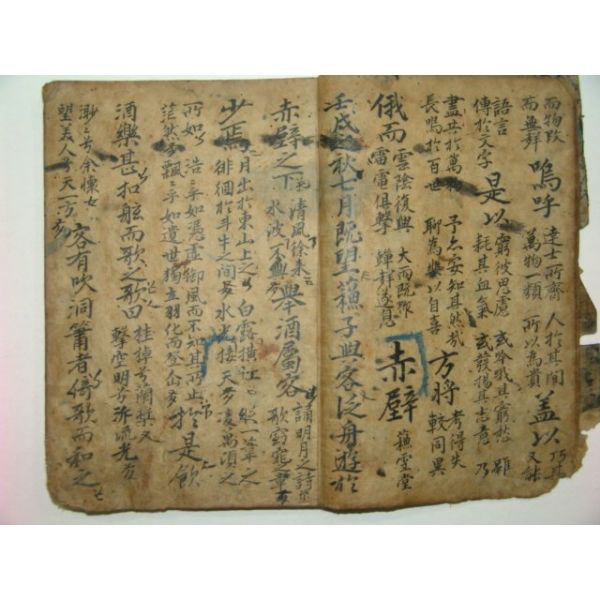 而物改
而無群
嗚呼
達士所齊
萬物一類
人於其間
所以為貴
蓋以
乃其
又能
語言
傳於文字
是以
窮彼思慮
耗其血氣
或吟哦其窮愁 雖
或發揚其志意 乃
盡共於萬
長鳴於百世
予亦安知其然哉
聊為樂以自喜
方將
考得失
較同異
俄而
雲陰復興
雷電俱擊
大雨既作
蟬聲遂息
赤壁
蘓雪堂
壬戌之秋七月既望蘓子與客泛舟遊於
赤壁之下
清風徐來
水波不興
擧酒屬客
誦明月之詩
歌窈窕之章
少焉
月出於東山上
徘徊於斗牛之間兮
白露橫江
水光接天兮
縱一葦之
凌萬頃之
所如
茫然兮
浩乎如憑虛御風而不知其所止
飄乎如遺世獨立羽化而登仙
於是飮
酒樂甚扣舷而歌之歌曰
桂棹兮蘭槳
擊空明兮泝流光
渺兮余懷
望美人兮天一方
客有吹洞簫者倚歌而和之